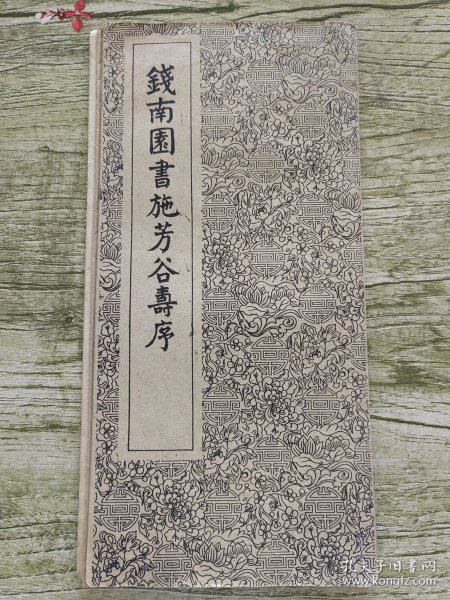 錢南園書施芳谷壽序
孔夫子旧书网
www.kongfz.com